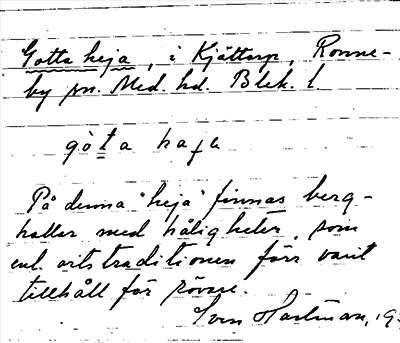 Gotta heja, i Kjättorp, Ronne-
by sn. Med. hd. Blek. l
gòta haja
På denna "heja" finnas berg-
hallar med håligheter, som
enl. ortstraditionen förr varit
tillhåll för rövare.
Sven Hartman, 19